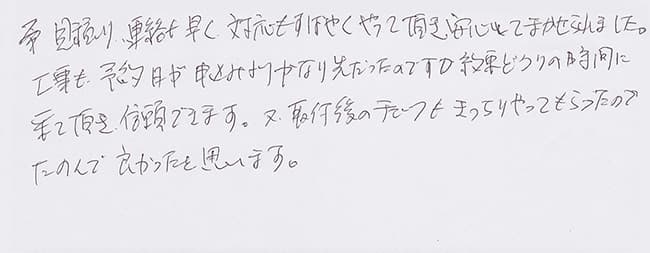 見積り、連絡も早く対応もすばやくやって頂き安心してまかせられました。
工事も予約日が申込みよりかなり先だったのですが約束どうりの時間に
来て頂き信頼できます。又、取付後のテープもきっちりやってもらったので
たのんで良かったと思います。